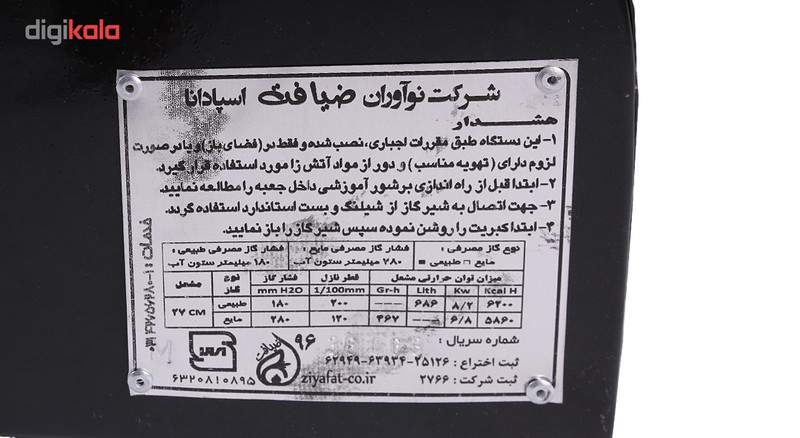 digikala
شرکت نوآوران ضیافت اسپادانا
هشدار
۱- این دستگاه طبق مقررات اجباری، نصب شده و فقط در (فضای باز) و یا در صورت
لزوم دارای (تهویه مناسب) و دور از مواد آتش زا مورد استفاده قرار گیرد.
۲- ابتدا قبل از راه اندازی برشور آموزشی داخل جعبه را مطالعه نمایید.
۳- جهت اتصال به شیر گاز از شیلنگ و بست استاندارد استفاده گردد.
۴- ابتدا کبریت را روشن نموده سپس شیر گاز را باز نمایید.
نوع گاز مصرفی : فشار گاز مصرفی مایع : فشار گاز مصرفی طبیعی :
مایع □ طبیعی ■ ۲۸۰ میلیمتر ستون آب ۱۸۰ میلیمتر ستون آب
میزان توان حرارتی مشعل قطر نازل فشار گاز نوع گاز مشعل
Kcal H Kw Lith Gr-h 1/100mm mm H2O
۶۲۰۰ ۸/۲ ۶۸۶ --- ۲۰۰ ۱۸۰ طبیعی ۲۷ CM
۵۸۶۰ ۶/۸ --- ۴۶۷ ۱۲۰ ۲۸۰ مایع
شماره سریال : ۹۶
ثبت اختراع : ۲۵۱۲۶-۶۳۹۳۴-۶۲۹۴۹
ثبت شرکت : ۲۷۶۶
ziyafat-co.ir
۶۳۲۰۸۱۰۸۹۵
خدمات :